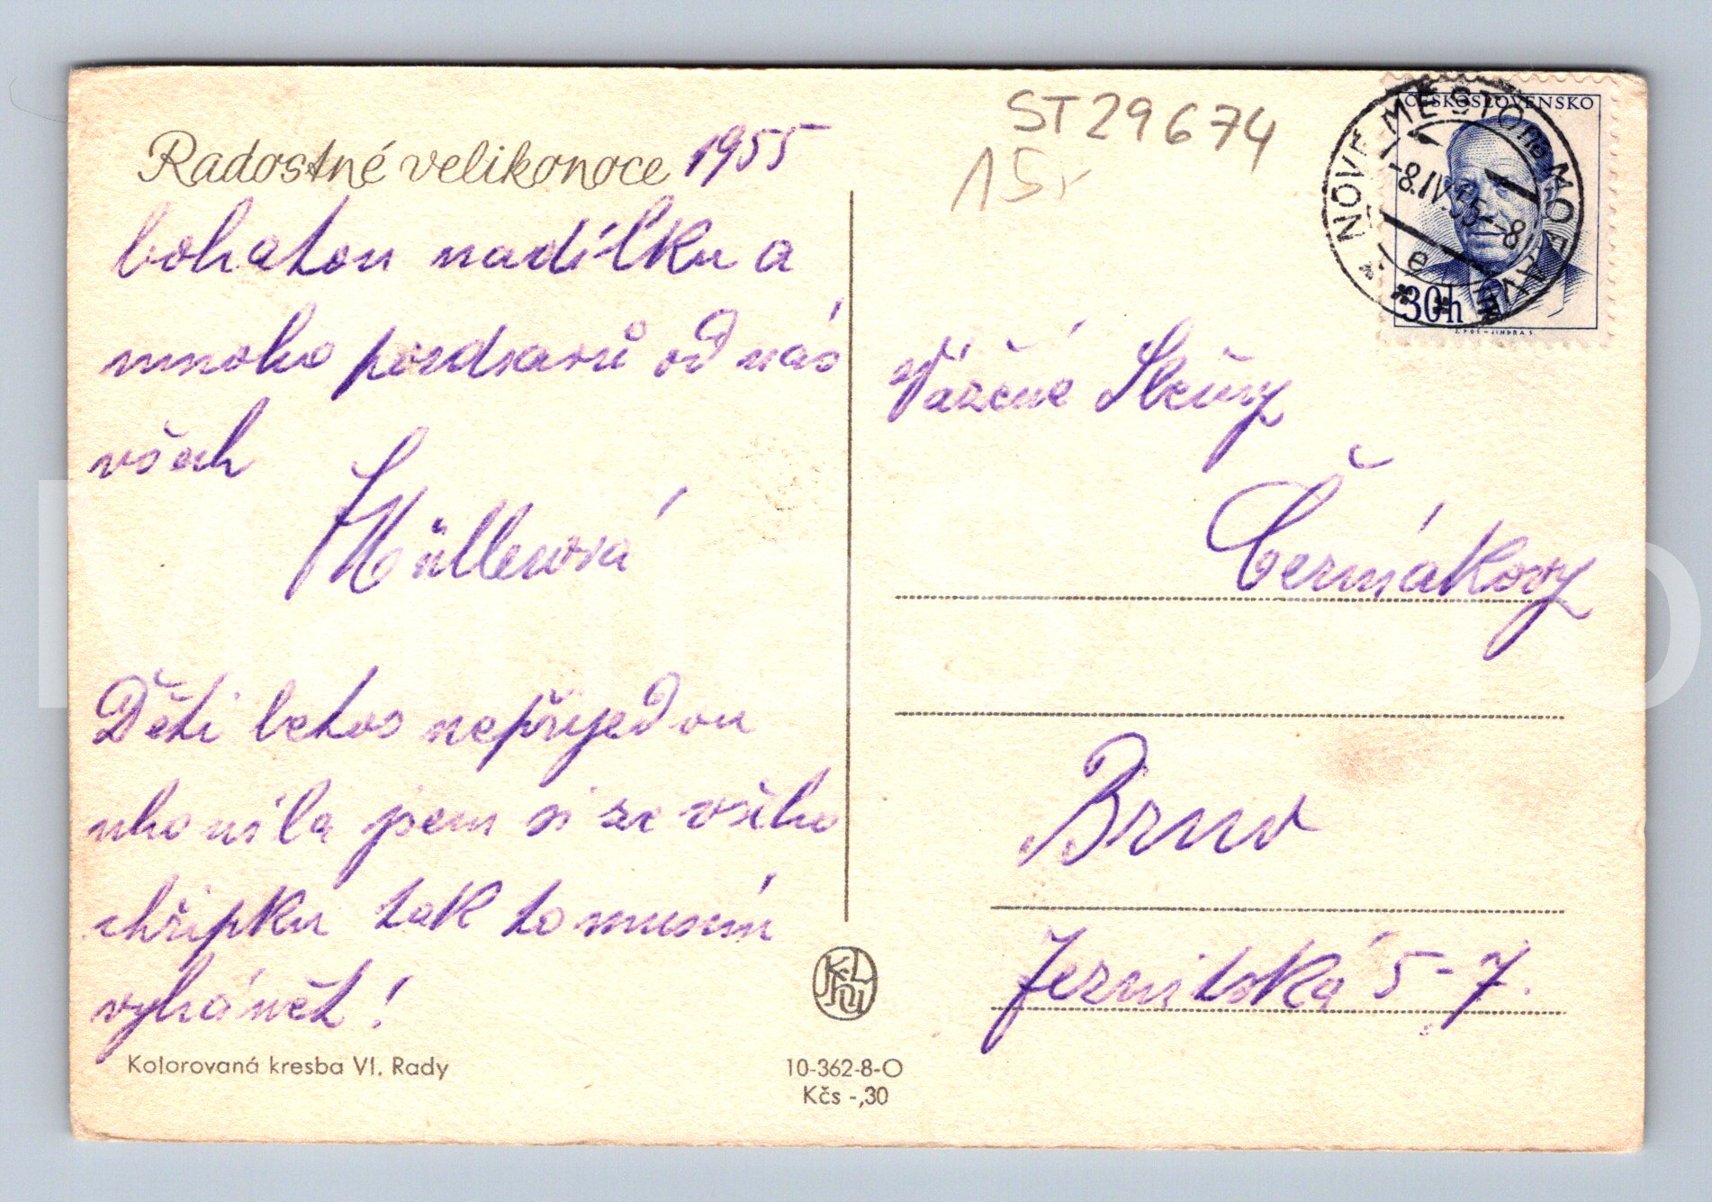 Radostné velikonoce 1955
bohatou nadílku a
mnoho pozdravů od nás
všech
Müllerová
Děti letos nepřijedou
uhonila jsem si ze všeho
chřipku tak to musím
vyhánět!
Kolorovaná kresba Vl. Rady
10-362-8-O
Kčs -,30
ST29674
15,-
ČESKOSLOVENSKO
30h
NOVÉ MĚSTO na MORAVĚ
-8.IV.55-8
e
Vážené Slečny
Čermákovy
Brno
5-7.